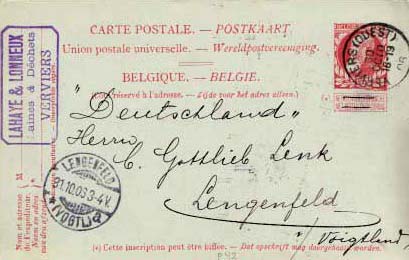 CARTE POSTALE. — POSTKAART
Union postale universelle. — Wereldpostvereeniging.
BELGIQUE. — BELGIE.
(Côté réservé à l'adresse. — Zijde voor het adres alleen.)
LAHAYE & LONNEUX
Laines & Déchets
VERVIERS
VERVIERS (OUEST)
BELGIQUE
"Deutschland"
Herrn
C. Gottlieb Lenk
Lengenfeld
i/Voigtland
LENGENFELD
31.10.05.3-4V.
(VOGTL.) a
M
Nom et adresse
de l'expéditeur.
Naam en adres
(*) Cette inscription peut être biffée. — Dat opschrift mag doorgehaald worden.
P42